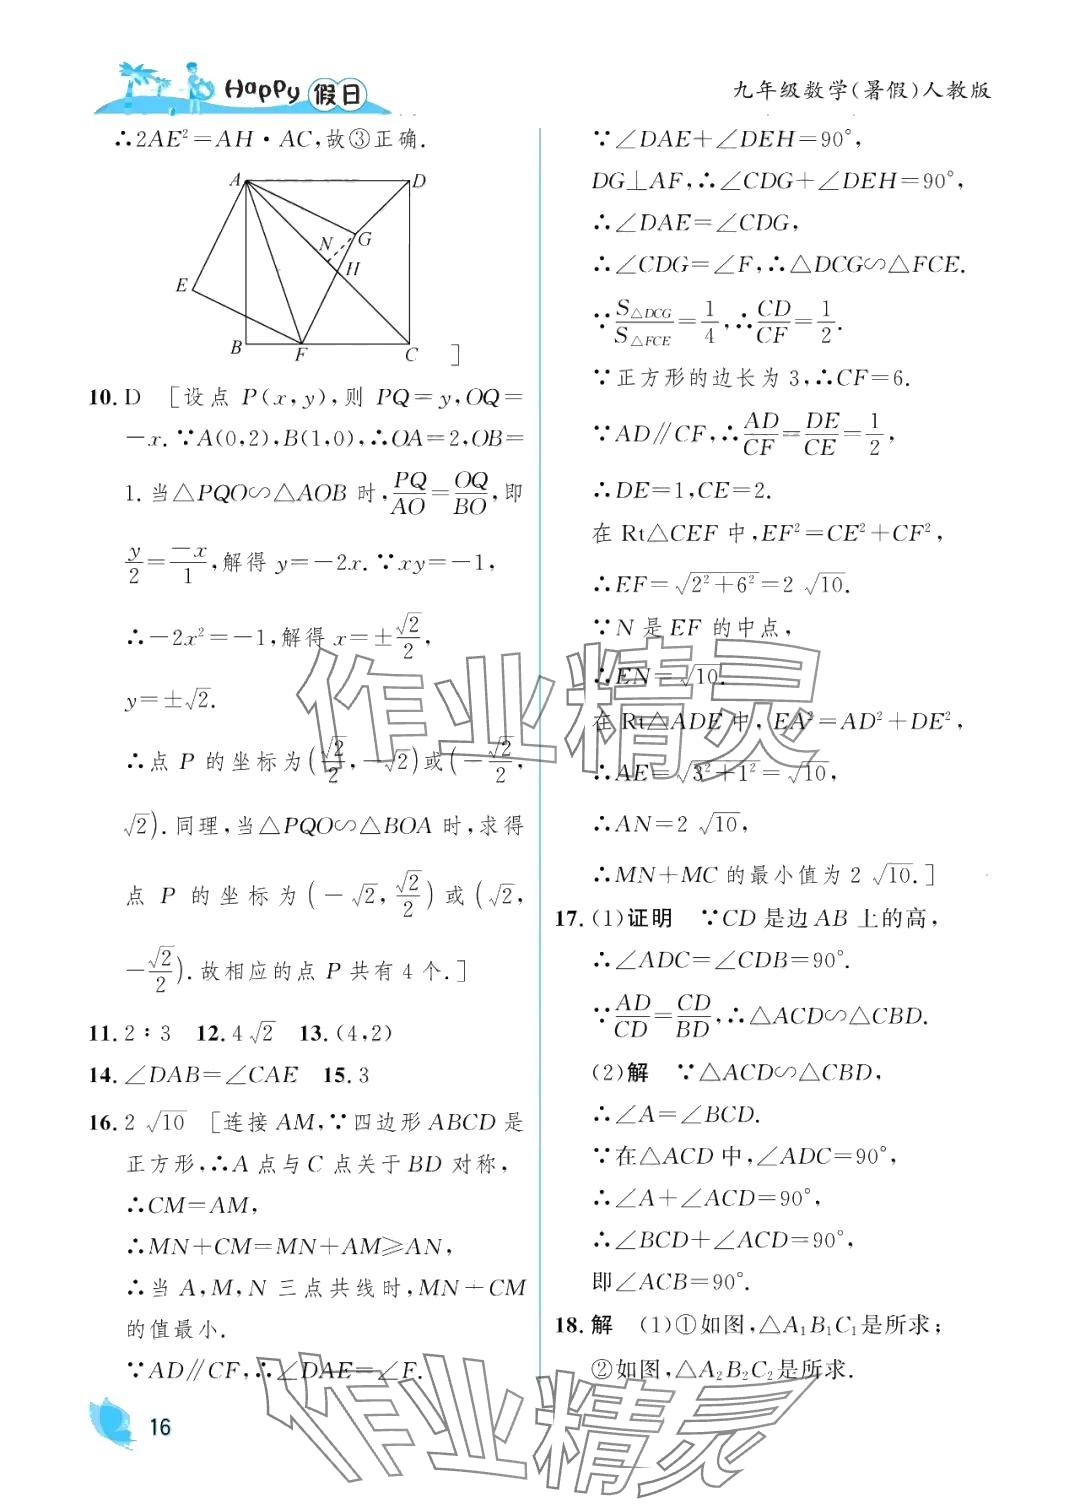 Happy 假日
九年级数学(暑假)人教版
∴2AE²=AH·AC,故③正确.
A
D
G
N
H
E
B
F
C
]
10. D [设点 P(x,y),则 PQ=y,OQ=
-x.∵A(0,2),B(1,0),∴OA=2,OB=
1.当△PQO∽△AOB 时,PQ/AO=OQ/BO,即
y/2=-x/1,解得 y=-2x.∵xy=-1,
∴-2x²=-1,解得 x=±√2/2,
y=±√2.
∴点 P 的坐标为(√2/2,-√2)或(-√2/2,
√2).同理,当△PQO∽△BOA 时,求得
点 P 的坐标为(-√2,√2/2)或(√2,
-√2/2).故相应的点 P 共有 4 个.]
11. 2∶3 12. 4√2 13. (4,2)
14. ∠DAB=∠CAE 15. 3
16. 2√10 [连接 AM,∵四边形 ABCD 是
正方形,∴A 点与 C 点关于 BD 对称,
∴CM=AM,
∴MN+CM=MN+AM⩾AN,
∴当 A,M,N 三点共线时,MN+CM
的值最小.
∵AD∥CF,∴∠DAE=∠F.
∵∠DAE+∠DEH=90°,
DG⊥AF,∴∠CDG+∠DEH=90°,
∴∠DAE=∠CDG,
∴∠CDG=∠F,∴△DCG∽△FCE.
∵S△DCG/S△FCE=1/4,∴CD/CF=1/2.
∵正方形的边长为 3,∴CF=6.
∵AD∥CF,∴AD/CF=DE/CE=1/2,
∴DE=1,CE=2.
在 Rt△CEF 中,EF²=CE²+CF²,
∴EF=√(2²+6²)=2√10.
∵N 是 EF 的中点,
∴EN=√10.
在 Rt△ADE 中,EA²=AD²+DE²,
∴AE=√(3²+1²)=√10,
∴AN=2√10,
∴MN+MC 的最小值为 2√10.]
17. (1)证明 ∵CD 是边 AB 上的高,
∴∠ADC=∠CDB=90°.
∵AD/CD=CD/BD,∴△ACD∽△CBD.
(2)解 ∵△ACD∽△CBD,
∴∠A=∠BCD.
∵在△ACD 中,∠ADC=90°,
∴∠A+∠ACD=90°,
∴∠BCD+∠ACD=90°,
即∠ACB=90°.
18. 解 (1)①如图,△A₁B₁C₁是所求;
②如图,△A₂B₂C₂是所求.
16
作业精灵
作业精灵